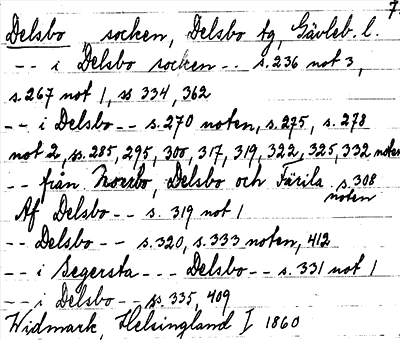 7.
Delsbo, socken, Delsbo tg, Gävleb. l.
-- i Delsbo socken -- s. 236 not 3,
s. 267 not 1, ss 334, 362
-- i Delsbo -- s. 270 noten, s. 275, s. 278
not 2, ss. 285, 295, 300, 317, 319, 322, 325, 332 noten
-- från Norrbo, Delsbo och Färila s. 308
noten
Af Delsbo -- s. 319 not 1
-- Delsbo -- s. 320, s. 333 noten, 412
-- i Segersta --- Delsbo -- s. 331 not 1
-- i Delsbo -- ss. 335, 409
Widmark, Helsingland I 1860